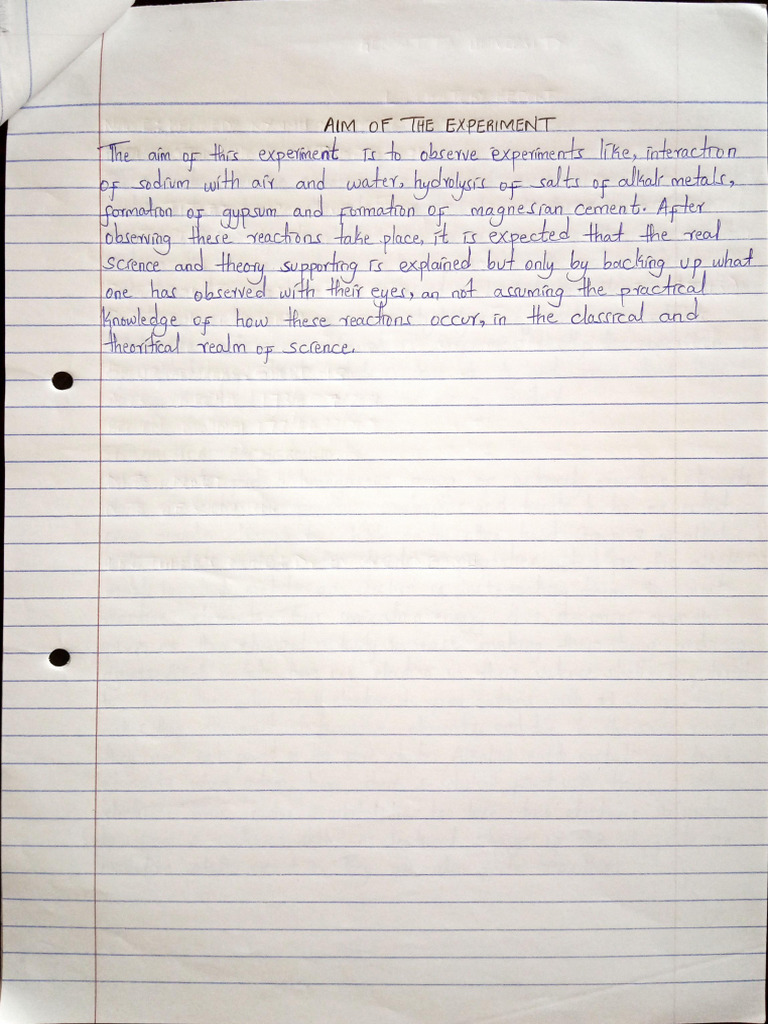 AIM OF THE EXPERIMENT
The aim of this experiment is to observe experiments like, interaction
of sodium with air and water, hydrolysis of salts of alkali metals,
formation of gypsum and formation of magnesian cement. After
observing these reactions take place, it is expected that the real
science and theory supporting is explained but only by backing up what
one has observed with their eyes, an not assuming the practical
knowledge of how these reactions occur, in the classical and
theoritical realm of science.